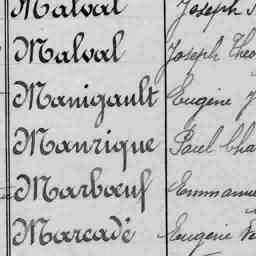 Malval Joseph
Malval Joseph Theo
Manigault Eugène J
Manrique Paul Cha
Marbœuf Emmanue
Marcadé Eugène Ve